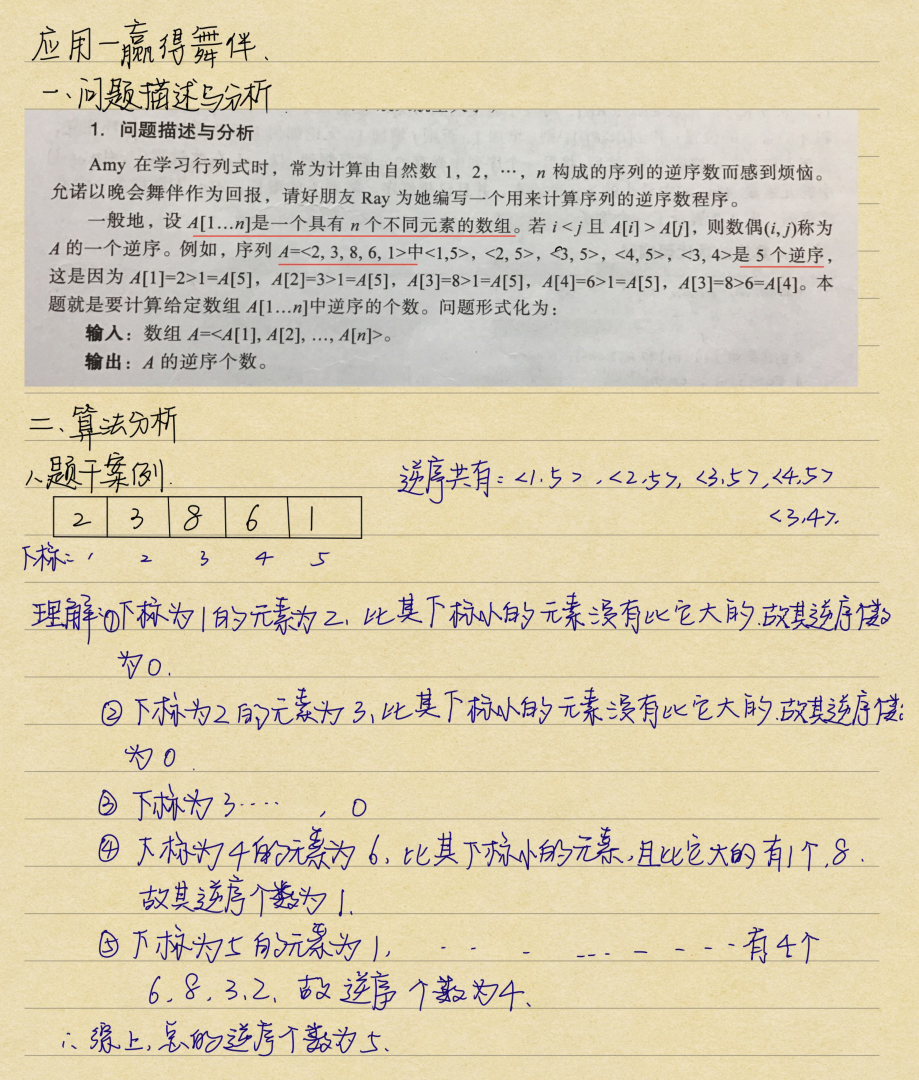 应用一赢得舞伴.
一、问题描述与分析
1. 问题描述与分析
Amy 在学习行列式时，常为计算由自然数 1，2，…，n 构成的序列的逆序数而感到烦恼。
允诺以晚会舞伴作为回报，请好朋友 Ray 为她编写一个用来计算序列的逆序数程序。
一般地，设 A[1…n]是一个具有 n 个不同元素的数组。若 i < j 且 A[i] > A[j]，则数偶(i, j)称为
A 的一个逆序。例如，序列 A=<2, 3, 8, 6, 1>中<1,5>，<2, 5>，<3, 5>，<4, 5>，<3, 4>是 5 个逆序，
这是因为 A[1]=2>1=A[5]，A[2]=3>1=A[5]，A[3]=8>1=A[5]，A[4]=6>1=A[5]，A[3]=8>6=A[4]。本
题就是要计算给定数组 A[1…n]中逆序的个数。问题形式化为：
输入：数组 A=<A[1], A[2], …, A[n]>。
输出：A 的逆序个数。
二、算法分析
1、题干案例.
逆序共有：<1.5>，<2.5>，<3.5>,<4.5>
<3.4>.
2 3 8 6 1
下标：1 2 3 4 5
理解：①下标为1的元素为2、比其下标小的元素没有比它大的.故其逆序值数
为0.
②下标为2的元素为3、比其下标小的元素没有比它大的.故其逆序值
为0.
③ 下标为3····，0
④ 下标为4的元素为6、比其下标小的元素,且比它大的有1个,8.
故其逆序个数为1.
⑤ 下标为5的元素为1, - - - ---- - - - - - 有4个
6、8、3、2、故逆序个数为4、
∴ 综上,总的逆序个数为5、